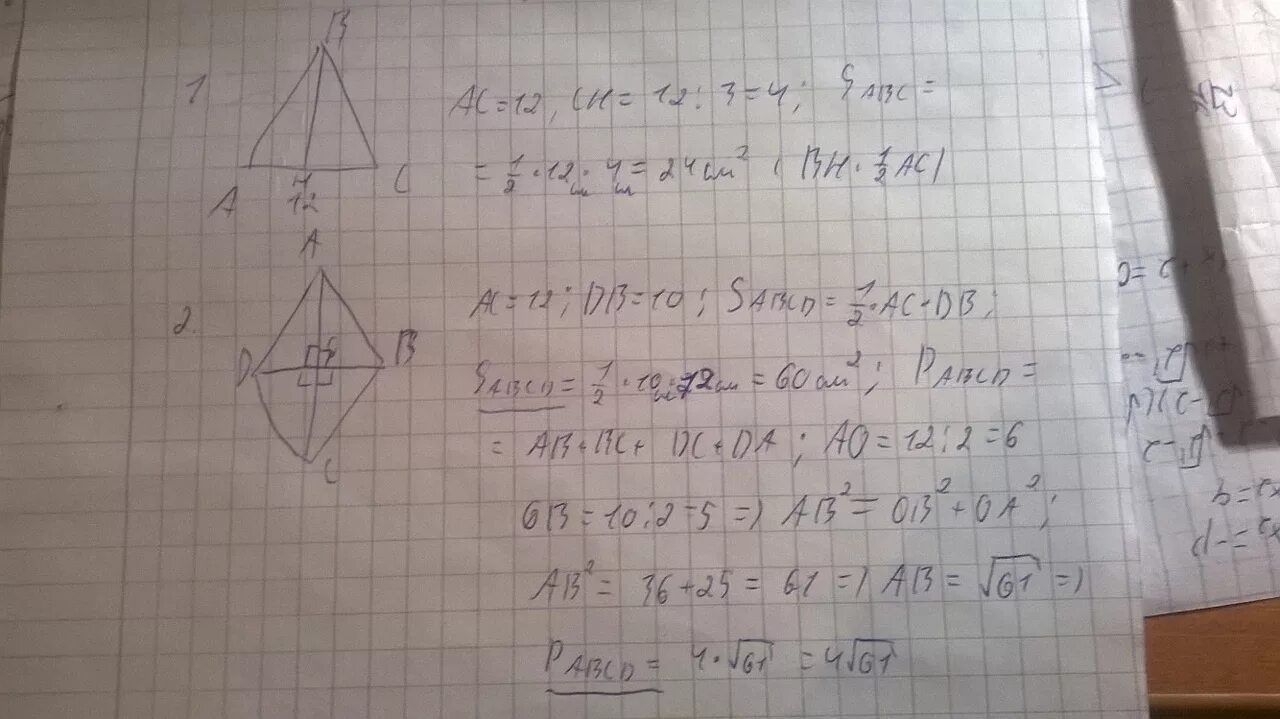 1
B
A
H
12
C
AC=12, CH= 12:3=4; S ABC =
= 1/2 · 12 см · 4 см = 24 см² ( BH · 1/2 AC)
2.
A
D
B
C
AC=12; DB=10; S ABCD = 1/2 · AC · DB;
S ABCD = 1/2 · 10 см · 12 см = 60 см²; P ABCD =
= AB+BC+ DC+DA; AO=12:2=6
OB=10:2=5 => AB² = OB² + OA²;
AB² = 36+25 = 61 => AB = √61 =>
P ABCD = 4·√61 = 4√61